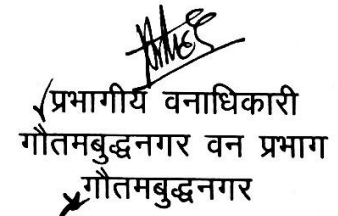 प्रभागीय वनाधिकारी
गौतमबुद्धनगर वन प्रभाग
गौतमबुद्धनगर